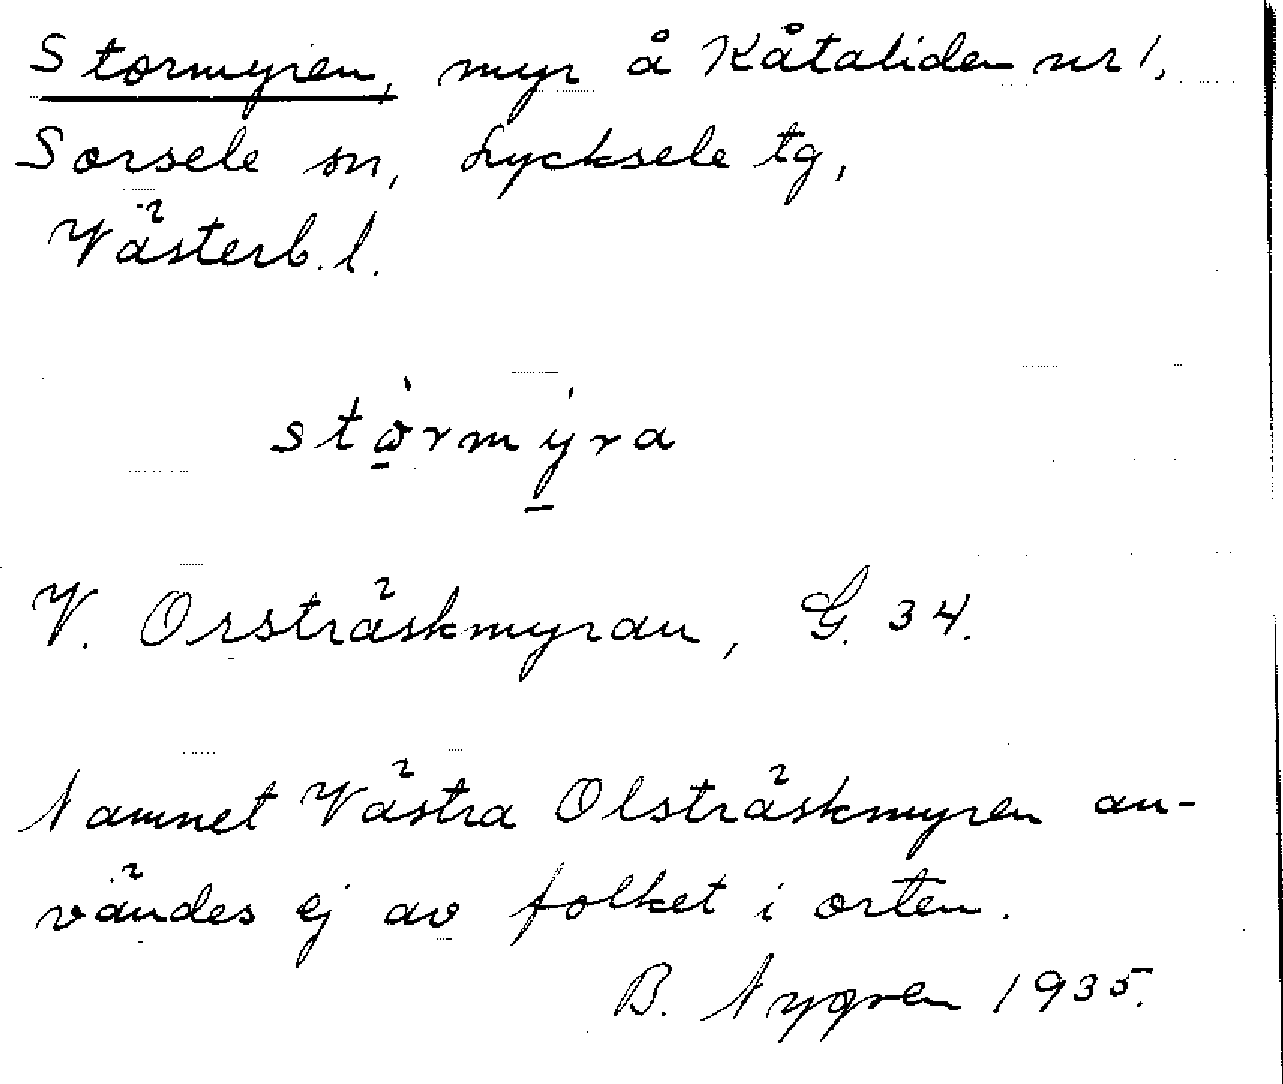 Stormyren, myr å Kåtaliden nr 1,
Sorsele sn, Lycksele tg,
Västerb. l.
stòrmýra
V. Orsträskmyran, G. 34.
Namnet Västra Olsträskmyren an-
vändes ej av folket i orten.
B. Nygren 1935.